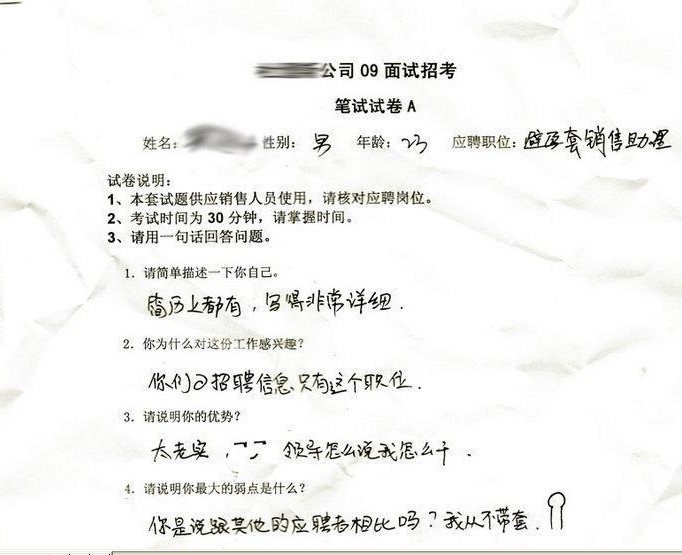 公司 09 面试招考
笔试试卷 A
姓名: 性别: 男 年龄: 23 应聘职位: 避孕套销售助理
试卷说明:
1、本套试题供应销售人员使用，请核对应聘岗位。
2、考试时间为 30 分钟，请掌握时间。
3、请用一句话回答问题。
1. 请简单描述一下你自己。
简历上都有，写得非常详细.
2. 你为什么对这份工作感兴趣?
你们的招聘信息只有这个职位.
3. 请说明你的优势?
太老实， 领导怎么说我怎么干.
4. 请说明你最大的弱点是什么?
你是说跟其他的应聘者相比吗? 我从不带套.